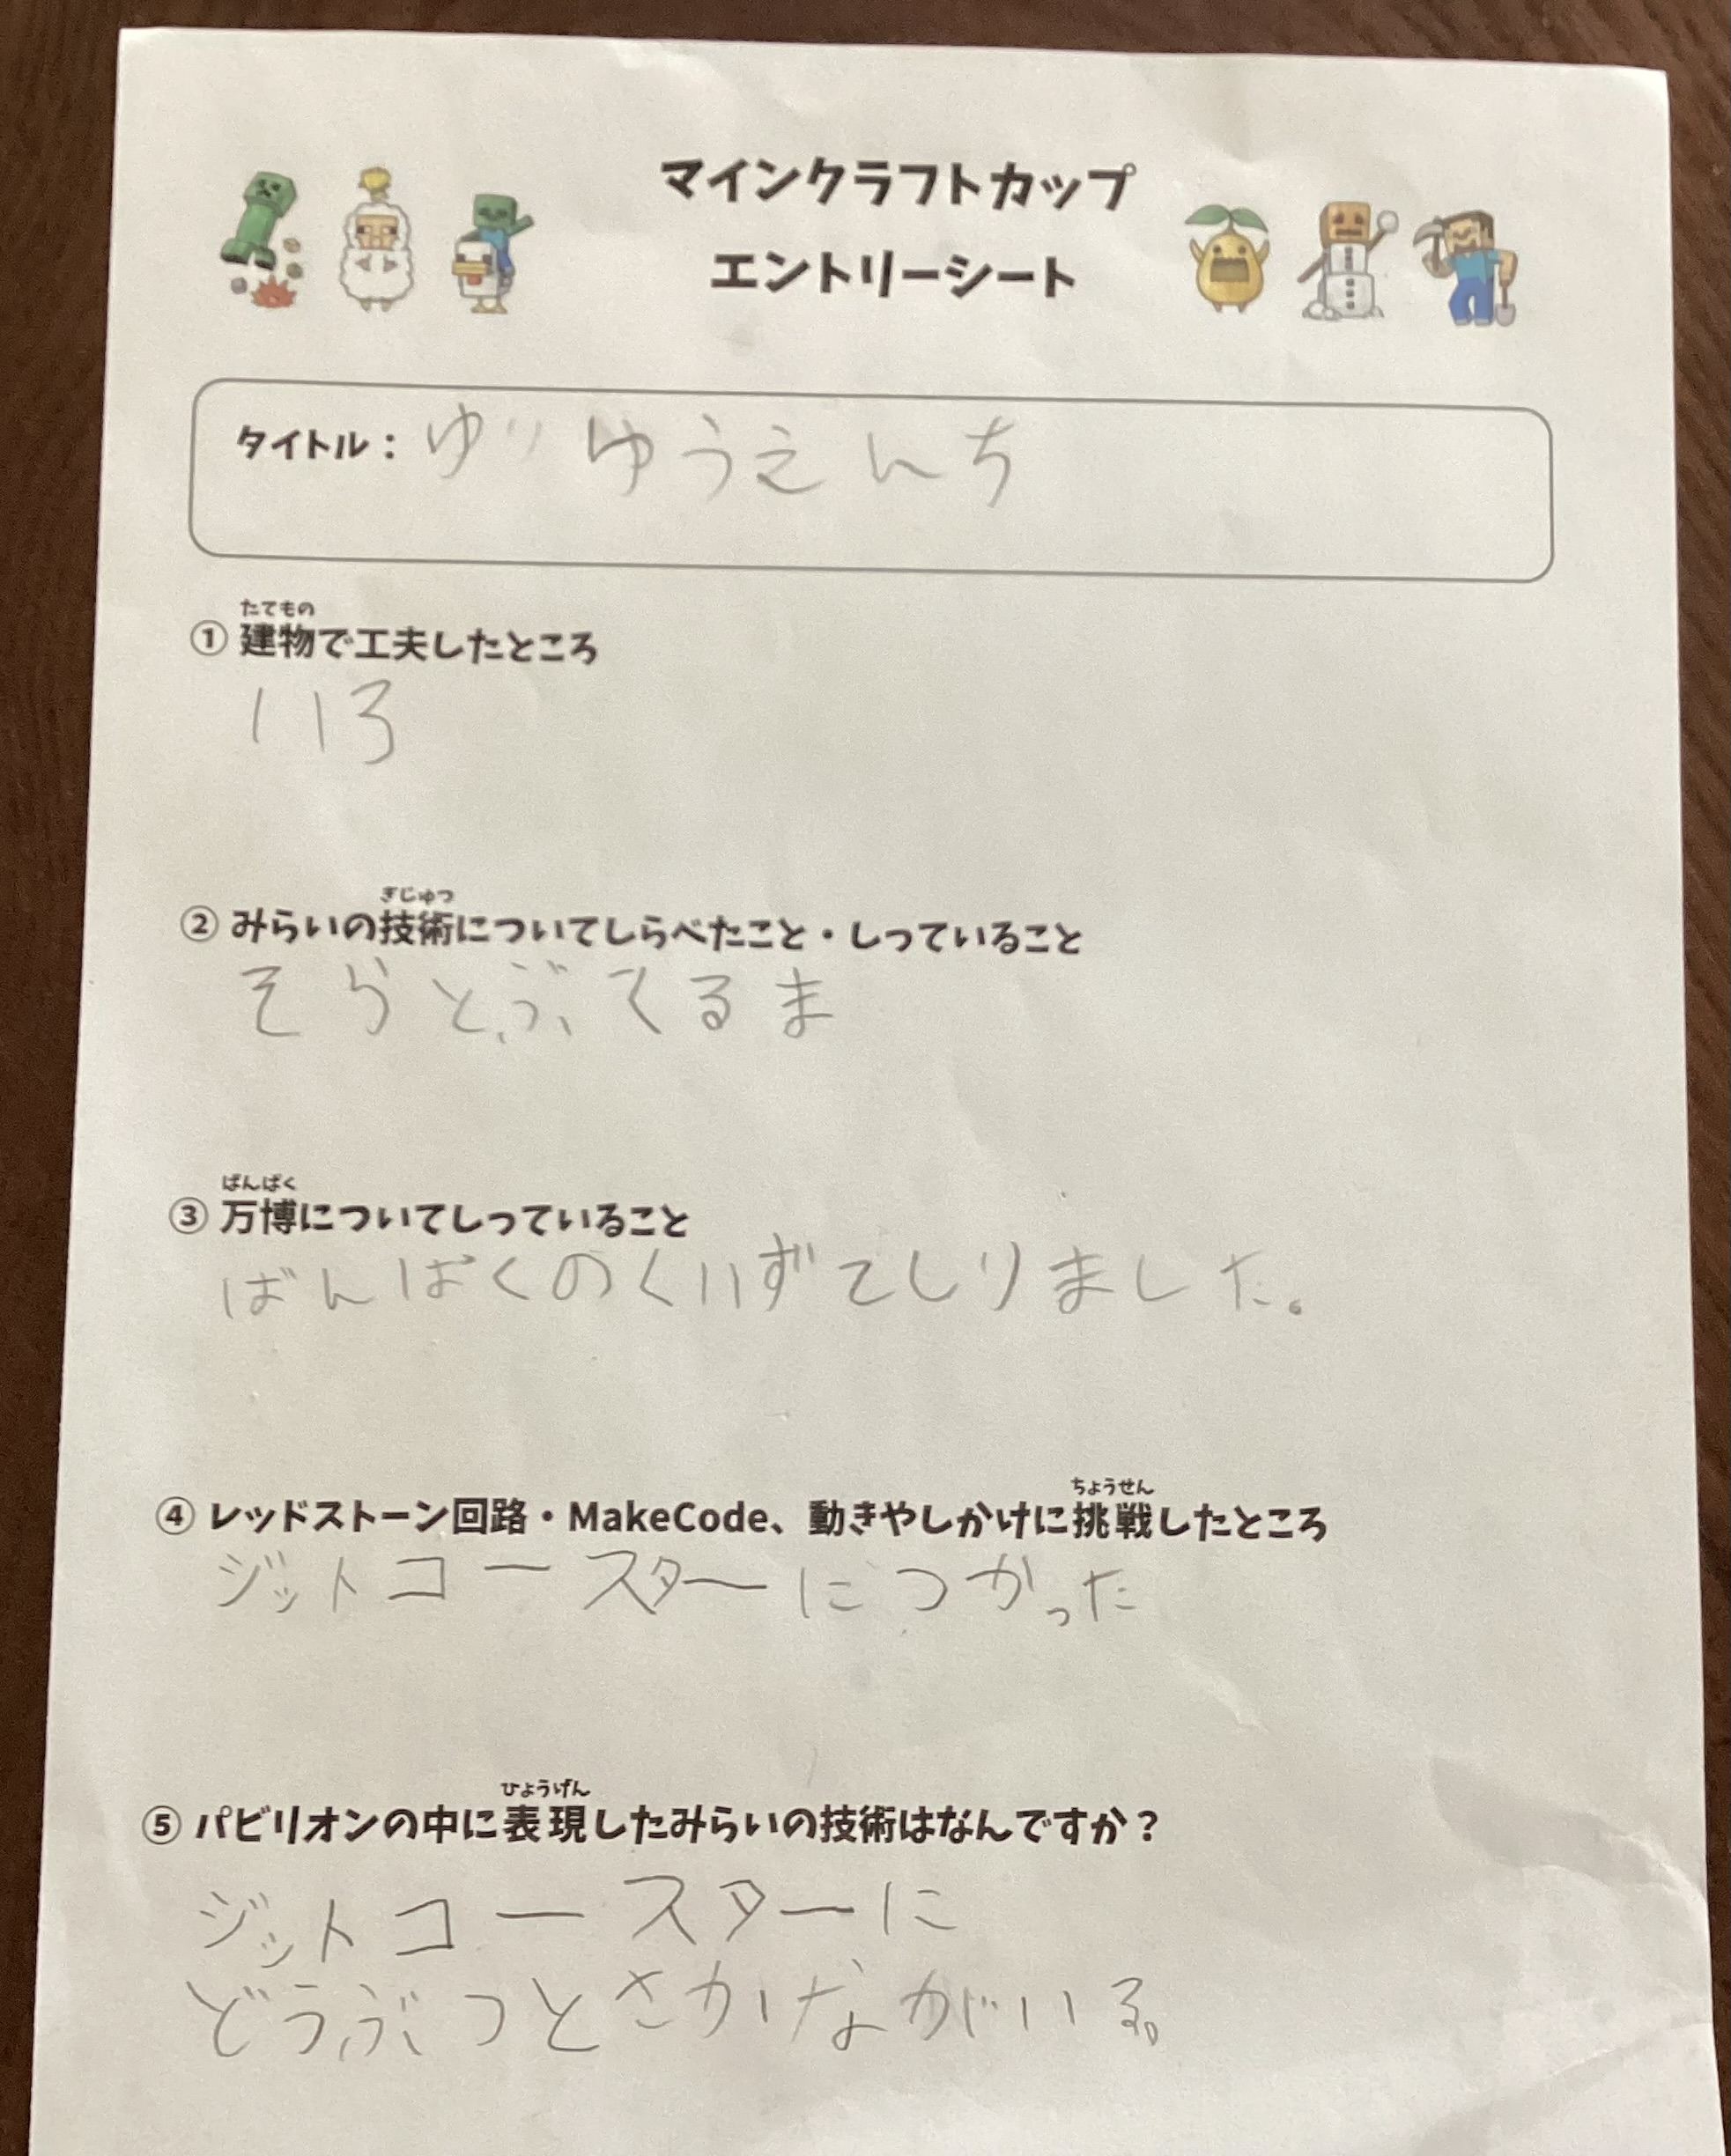 マインクラフトカップ
エントリーシート
タイトル：ゆり ゆうえんち
たてもの
① 建物で工夫したところ
いろ
ぎじゅつ
② みらいの技術についてしらべたこと・しっていること
そらとぶくるま
ばんぱく
③ 万博についてしっていること
ばんぱくのくいずでしりました。
ちょうせん
④ レッドストーン回路・MakeCode、動きやしかけに挑戦したところ
ジットコースターにつかった
ひょうげん
⑤ パビリオンの中に表現したみらいの技術はなんですか？
ジットコースターに
どうぶつとさかながいる。